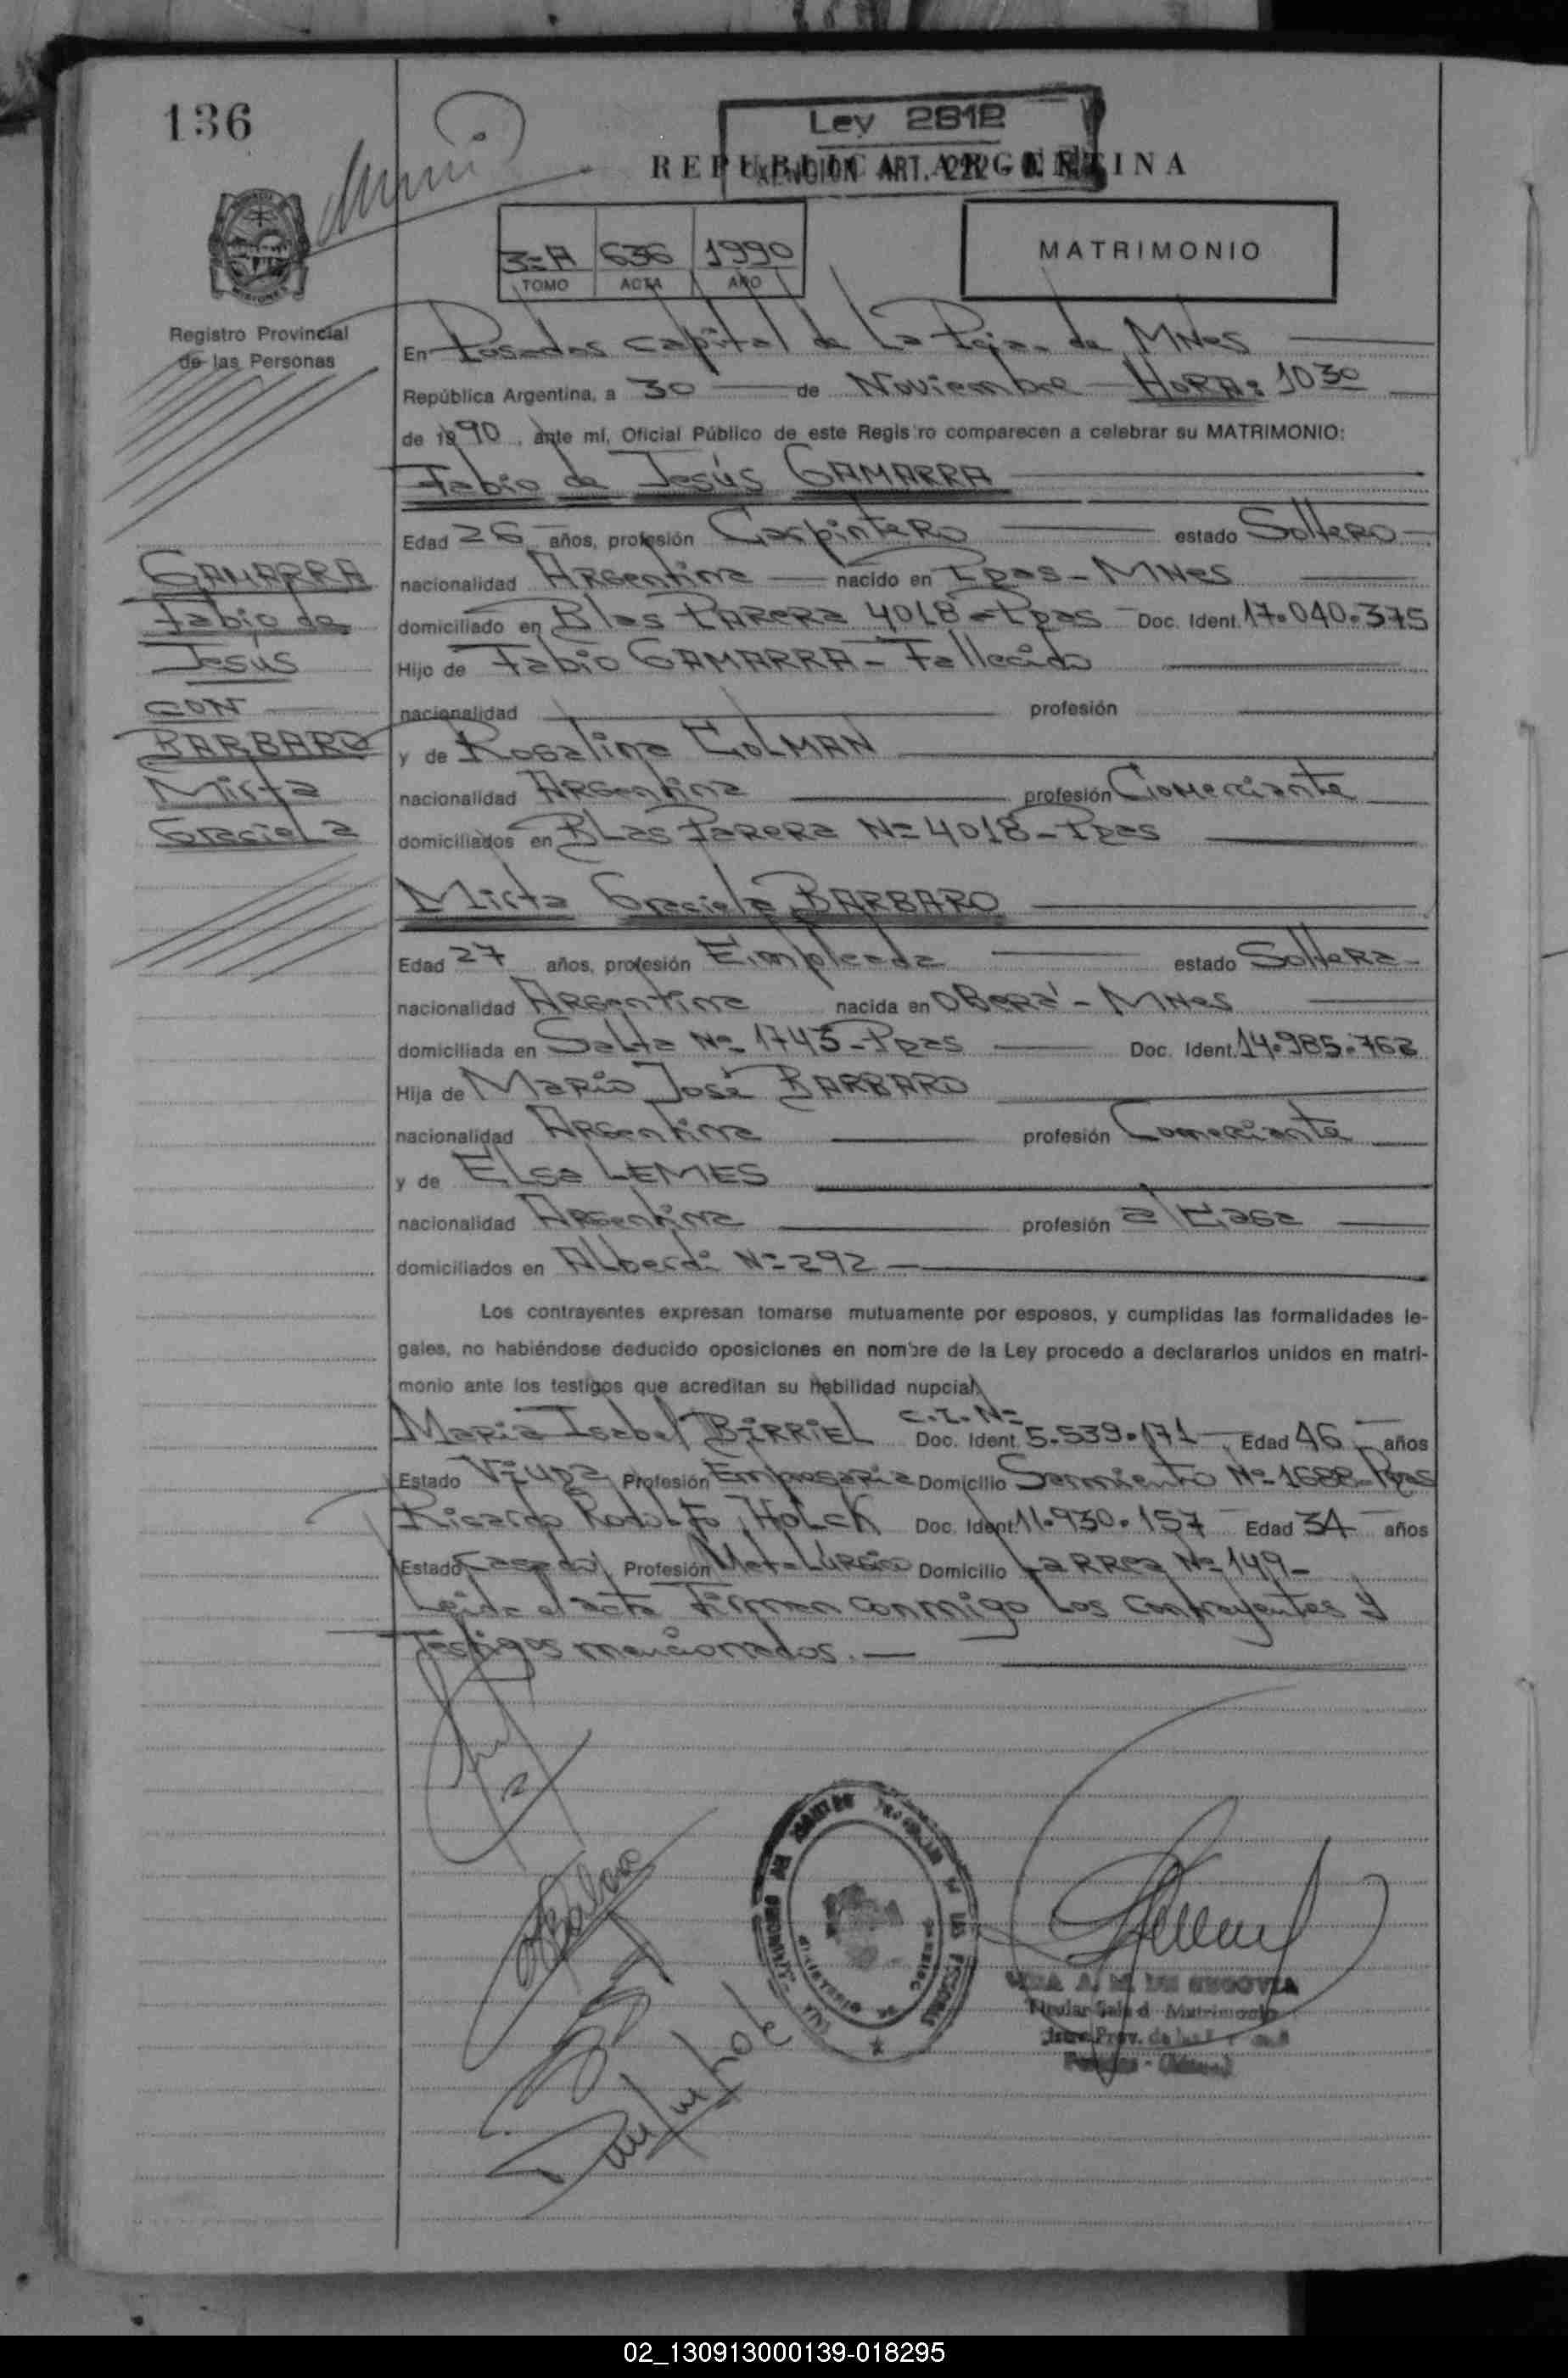 136
Ley 2812
EXENCION ART. 222
REPUBLICA ARGENTINA
3=A 636 1990
TOMO ACTA AÑO
MATRIMONIO
Registro Provincial
de las Personas
En Posadas Capital de La Pcia. de MNes
República Argentina, a 30 de Noviembre HORA: 10 30
de 1990, ante mí, Oficial Público de este Registro comparecen a celebrar su MATRIMONIO:
Fabio de Jesús GAMARRA
Edad 26 años, profesión Carpintero estado Soltero
GAMARRA
Fabio de
Jesús
CON
BARBARO
Mirta
Graciela
nacionalidad Argentina nacido en Ppas - MNes
domiciliado en Blas PARERA 4018 - Ppas Doc. Ident. 17.040.375
Hijo de Fabio GAMARRA - Fallecido
nacionalidad profesión
y de Rosalina COLMAN
nacionalidad Argentina profesión Comerciante
domiciliados en BLas Parera N= 4018 - Ppas
Mirta Graciela BARBARO
Edad 27 años, profesión Empleada estado Soltera
nacionalidad Argentina nacida en OBerá - MNes
domiciliada en Salta Nº 1743 - Ppas Doc. Ident. 14.985.762
Hija de Mario José BARBARO
nacionalidad Argentina profesión Comerciante
y de ELsa LEMES
nacionalidad Argentina profesión a/casa
domiciliados en ALberdi N= 292
Los contrayentes expresan tomarse mutuamente por esposos, y cumplidas las formalidades le-
gales, no habiéndose deducido oposiciones en nombre de la Ley procedo a declararlos unidos en matri-
monio ante los testigos que acreditan su habilidad nupcial
Maria Isabel BIRRIEL C.I. N= Doc. Ident. 5.539.171 Edad 46 años
Estado Viuda Profesión Empresaria Domicilio Sarmiento Nº 1688 - Ppas
Ricardo Rodolfo HOLCK Doc. Ident. 11.930.157 Edad 34 años
Estado casado Profesión MetaLúrgico Domicilio LaRRea Nº 149 -
Leida el acta Firman conmigo Los contrayentes y
Testigos mencionados.
A. M. DE SEGOVIA
Titular Sala d Matrimonio
Prov. de las
Posadas - (Mnes.)
02_130913000139-018295